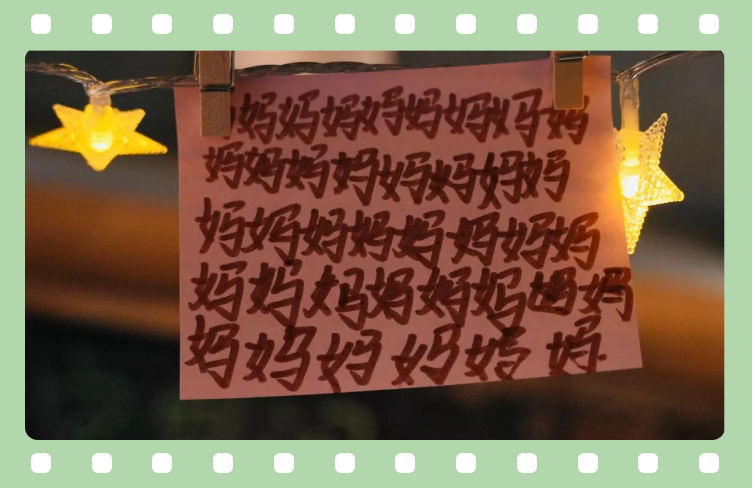 妈妈妈妈妈妈妈妈
妈妈妈妈妈妈妈妈
妈妈妈妈妈妈妈妈
妈妈妈妈妈妈妈妈
妈妈妈妈妈妈